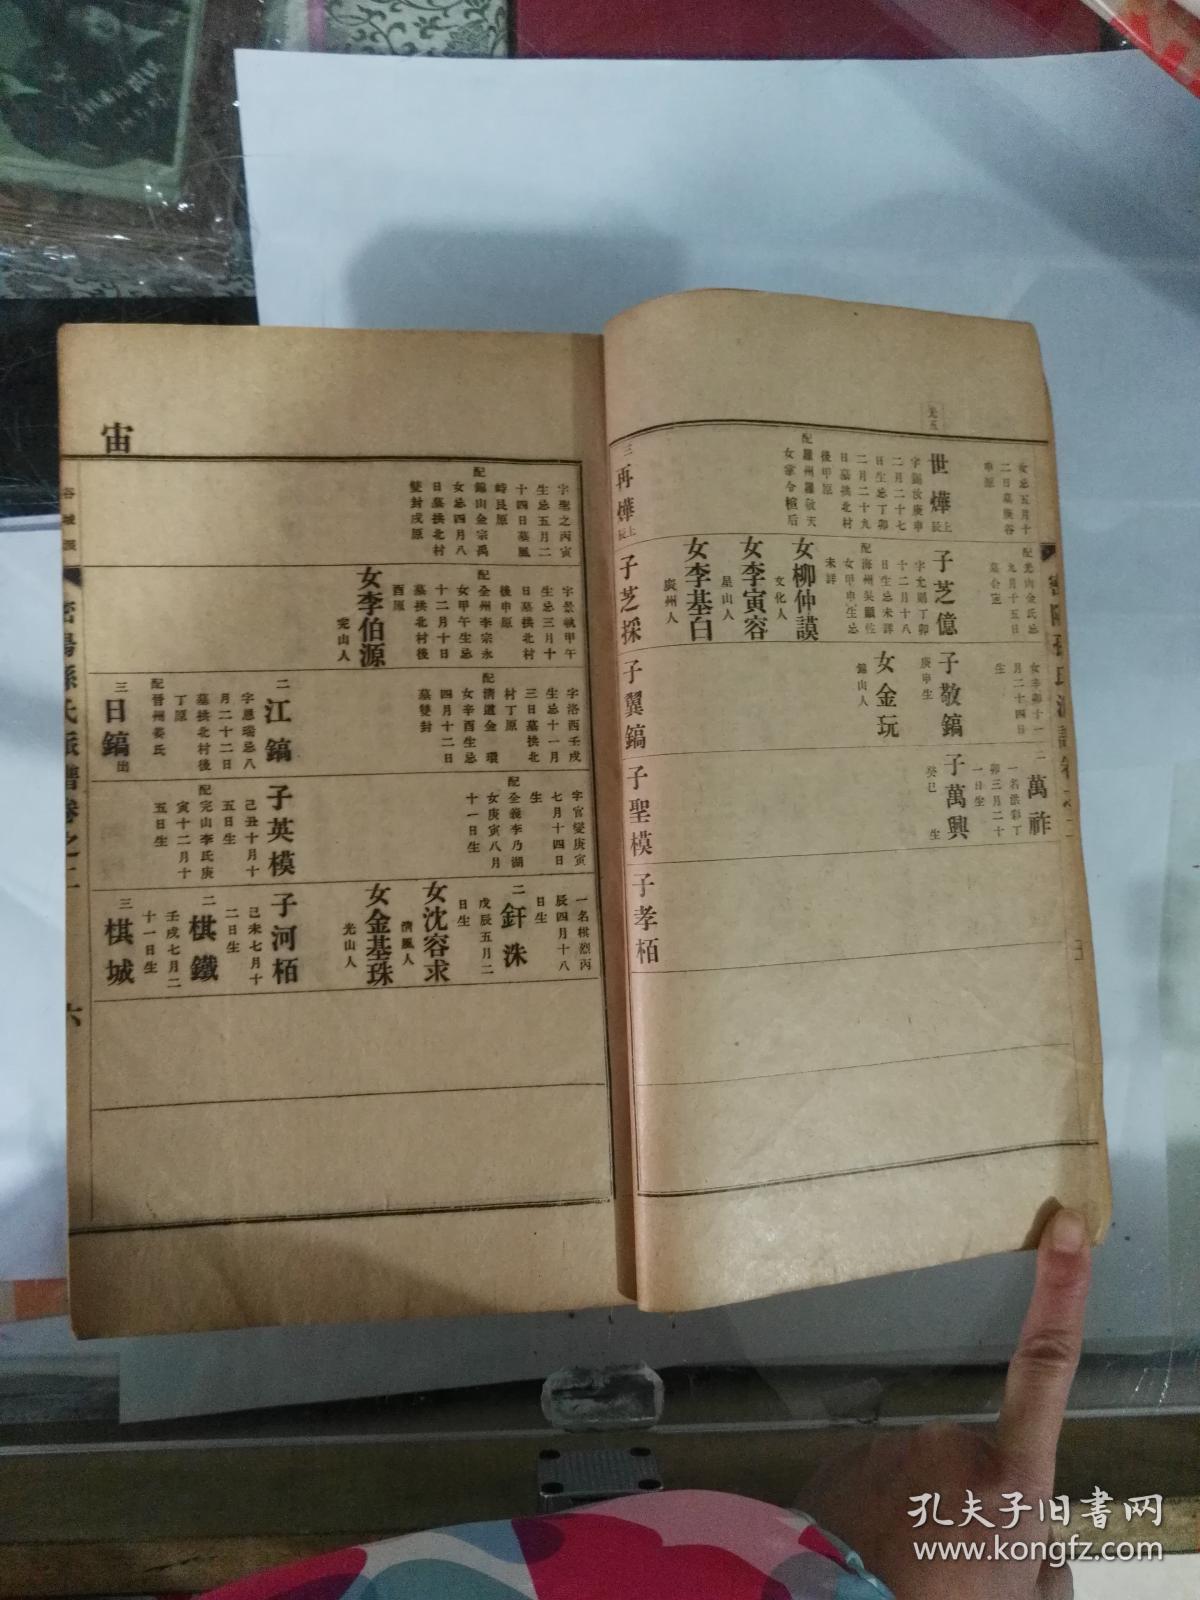 女忌五月十
二日墓陝谷
申原
世燁
上辰
字錫汝庚申
二月二十七
日生忌丁卯
二月二十九
日墓拱北村
後甲原
配羅州羅敬天
女掌令楦后
三再燁
上辰
配光山金氏忌
九月十五日
子芝億
字允賜丁卯
十二月十八
日生忌未詳
配海州吳顯佐
女甲申生忌
未詳
女柳仲謨
文化人
女李寅容
星山人
女李基白
廣州人
子芝採
女辛卯十一
月二十四日
生
子敬鎬
庚申生
女金玩
錦山人
子翼鎬
二萬祚
一名洪彩丁
卯三月二十
一日生
子萬興
癸巳生
子聖模
子孝栢
五
宙
字聖之丙寅
生忌五月二
十四日墓鳳
峙艮原
配錦山金宗禹
女忌四月八
日墓拱北村
雙封戌原
字景執甲午
生忌三月十
日墓拱北村
後申原
配全州李宗永
女甲午生忌
十二月十日
墓拱北村後
酉原
女李伯源
完山人
字洛西壬戌
生忌十一月
三日墓拱北
村丁原
配清道金環
女辛酉生忌
四月十二日
墓雙封
二江鎬
字恩瑞忌八
月二十二日
墓拱北村後
丁原
配晉州姜氏
三日鎬
出
字官燮庚寅
七月十四日
生
配全義李乃湖
女庚寅八月
十一日生
子英模
己丑十月十
五日生
配完山李氏庚
寅十二月十
五日生
一名棋烈丙
辰四月十八
日生
二釬洙
戊辰五月二
日生
女沈容求
清風人
女金基珠
光山人
子河栢
己未七月十
二日生
二棋鐵
壬戌七月二
十一日生
三棋城
谷城派
密陽孫氏派譜卷之二
六
孔夫子旧书网
www.kongfz.com